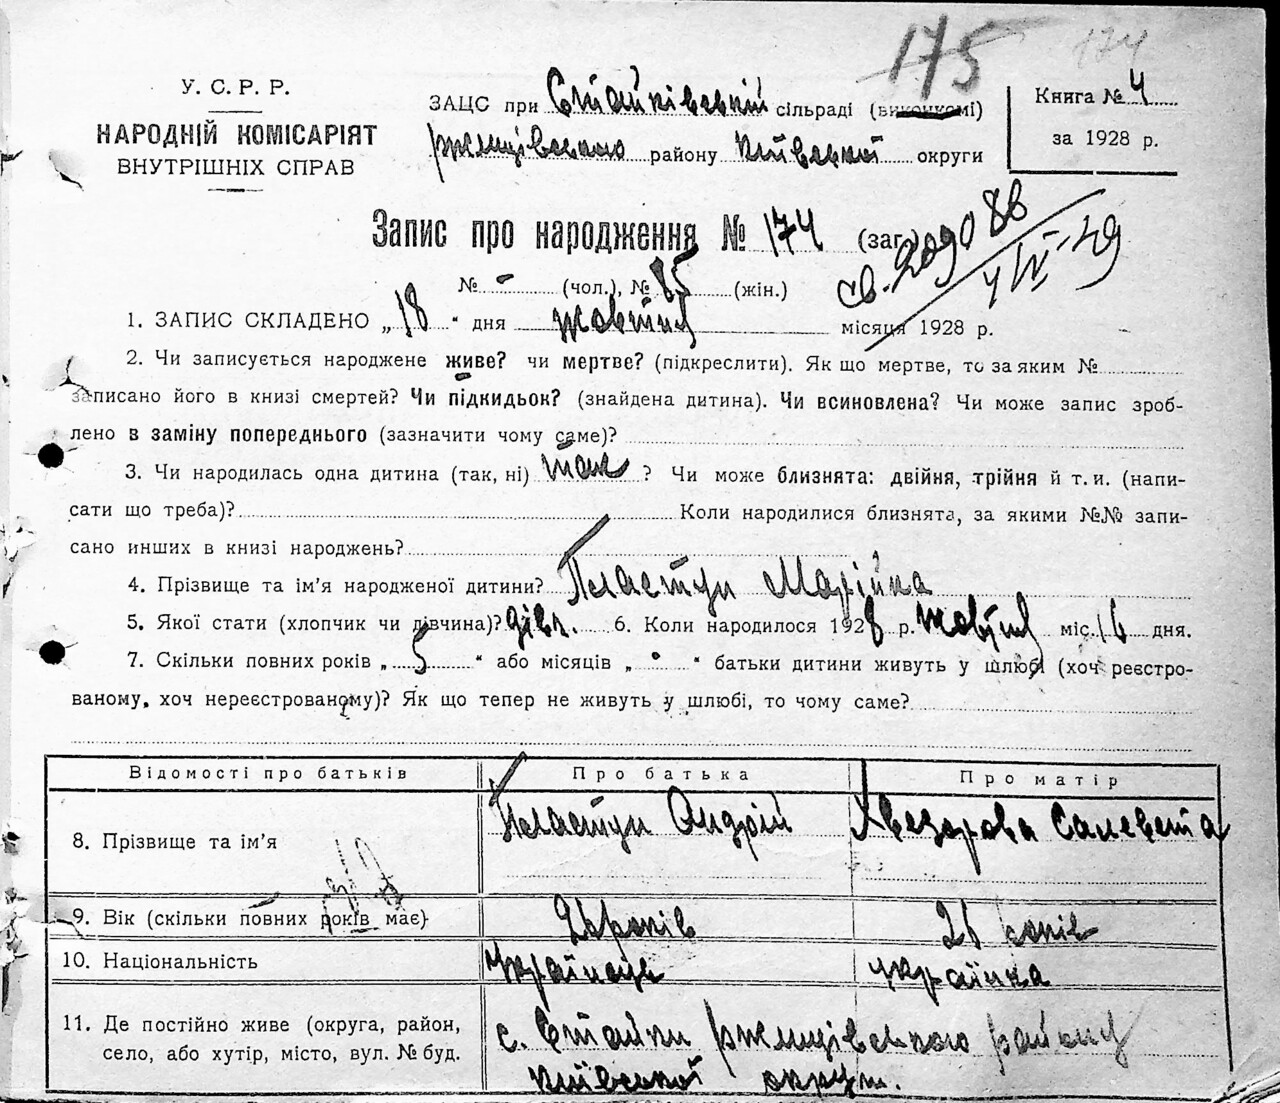 175 174
У. С. Р. Р.
НАРОДНІЙ КОМІСАРІЯТ
ВНУТРІШНІХ СПРАВ
ЗАЦС при Стайківській сільраді (виконкомі)
ржищівського району київської округи
Книга № 4
за 1928 р.
Запис про народження № 174 (заг.)
св. 209088
4/VI-49
№ - (чол.), № 85 (жін.)
1. ЗАПИС СКЛАДЕНО „18“ дня жовтня місяця 1928 р.
2. Чи записується народжене живе? чи мертве? (підкреслити). Як що мертве, то за яким №
записано його в книзі смертей? Чи підкидьок? (знайдена дитина). Чи всиновлена? Чи може запис зроб-
лено в заміну попереднього (зазначити чому саме)?
3. Чи народилась одна дитина (так, ні) так ? Чи може близнята: двійня, трійня й т. и. (напи-
сати що треба)? Коли народилися близнята, за якими №№ запи-
сано инших в книзі народжень?
4. Прізвище та ім’я народженої дитини? Пластун Марійка
5. Якої стати (хлопчик чи дівчина)? дівч. 6. Коли народилося 1928 р. жовтня міс. 16 дня.
7. Скільки повних років „5“ або місяців „ “ батьки дитини живуть у шлюбі (хоч реєстро-
ваному, хоч нереєстрованому)? Як що тепер не живуть у шлюбі, то чому саме?
Відомості про батьків Про батька Про матір
8. Прізвище та ім’я Пластун Андрій Хведорова Салевета
9. Вік (скільки повних років має) 26 років 26 років
10. Національність Українець українка
11. Де постійно живе (округа, район, с. Стайки ржищівського району
село, або хутір, місто, вул. № буд. київської округи.